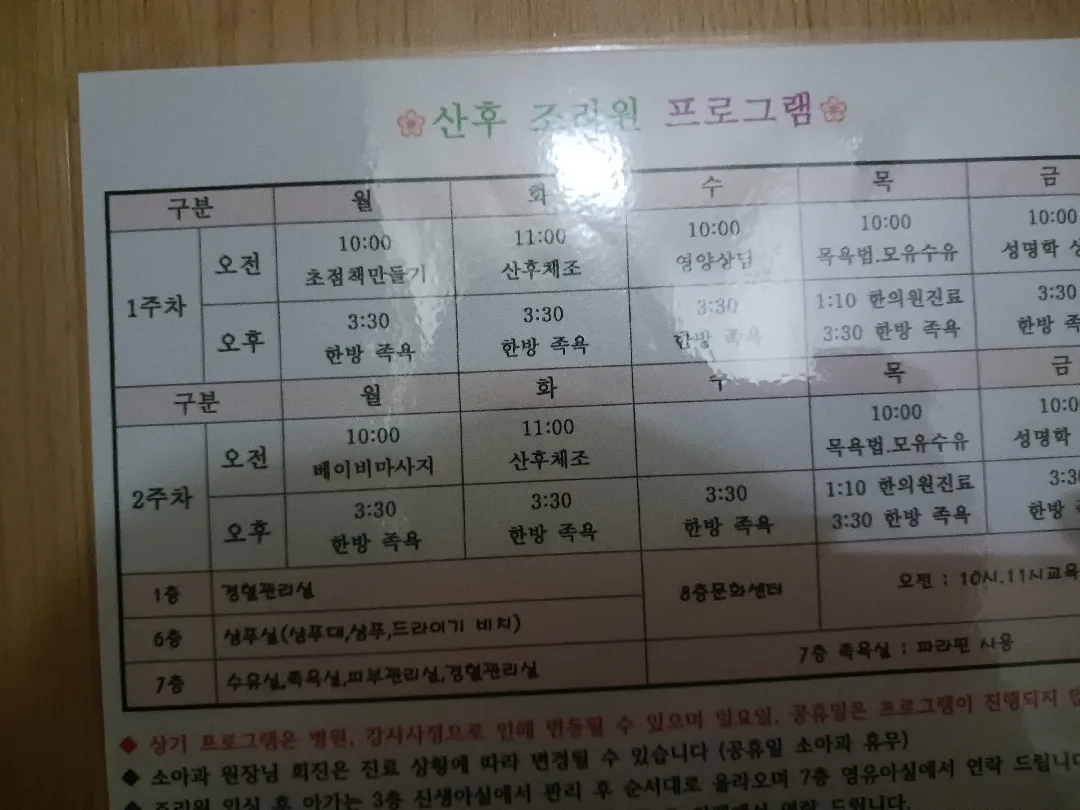 산후 조리원 프로그램
구분 월 화 수 목 금
1주차 오전 10:00 11:00 10:00 10:00 10:00
초점책만들기 산후체조 영양상담 목욕법.모유수유 성명학
오후 3:30 3:30 3:30 1:10 한의원진료 3:30
한방 족욕 한방 족욕 한방 족욕 3:30 한방 족욕 한방
구분 월 화 수 목 금
2주차 오전 10:00 11:00 10:00
베이비마사지 산후체조 목욕법.모유수유 성명학
오후 3:30 3:30 3:30 1:10 한의원진료
한방 족욕 한방 족욕 한방 족욕 3:30 한방 족욕 한방
1층 경혈관리실 8층문화센터 오전 : 10시.11시교육
6층 샴푸실(샴푸대,샴푸,드라이기 비치)
7층 수유실,족욕실,피부관리실,경혈관리실 7층 족욕실 : 파라핀 사용
◆ 상기 프로그램은 병원, 강사사정으로 인해 변동될 수 있으며 일요일, 공휴일은 프로그램이 진행되지
◆ 소아과 원장님 회진은 진료 상황에 따라 변경될 수 있습니다 (공휴일 소아과 휴무)
◆ 조리원 입실 후 아기는 3층 신생아실에서 관리 후 순서대로 올라오며 7층 영유아실에서 연락 드립니다
연락 드립니다.